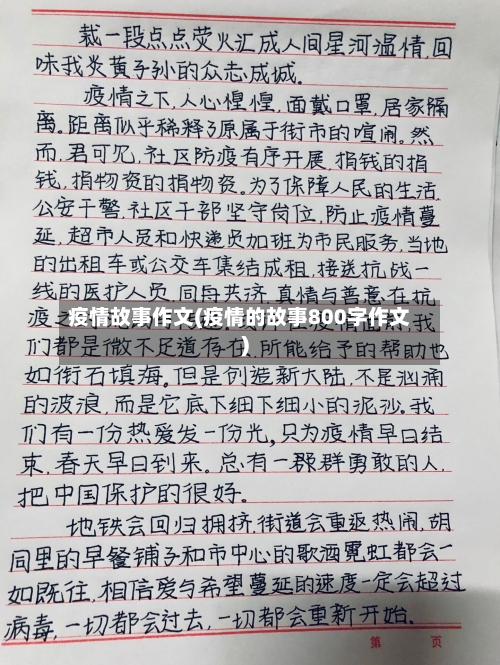 裁一段点点荧火汇成人间星河温情,回
味我炎黄子孙的众志成城。
疫情之下,人心惶惶,面戴口罩,居家隔
离。距离似乎稀释了原属于街市的喧闹。然
而,君可见,社区防疫有序开展,捐钱的捐
钱,捐物资的捐物资。为了保障人民的生活,
公安干警,社区干部坚守岗位,防止疫情蔓
延,超市人员和快递员加班为市民服务,当地
的出租车或公交车集结成组,接送抗战一
线的医护人员,同舟共济,真情与善意在抗
疫
疫情故事作文(疫情的故事800字作文
)
们都是微不足道存在,所能给予的帮助也
如衔石填海。但是创造新大陆,不是汹涌
的波浪,而是它底下细下细小的泥沙。我
们有一份热爱发一份光,只为疫情早日结
束,春天早日到来。总有一群群勇敢的人,
把中国保护的很好。
地铁会回归拥挤,街道会重返热闹,胡
同里的早餐铺子和市中心的歌酒霓虹都会一
如既往,相信爱与希望蔓延的速度一定会超过
病毒,一切都会过去,一切都会重新开始.
第 页